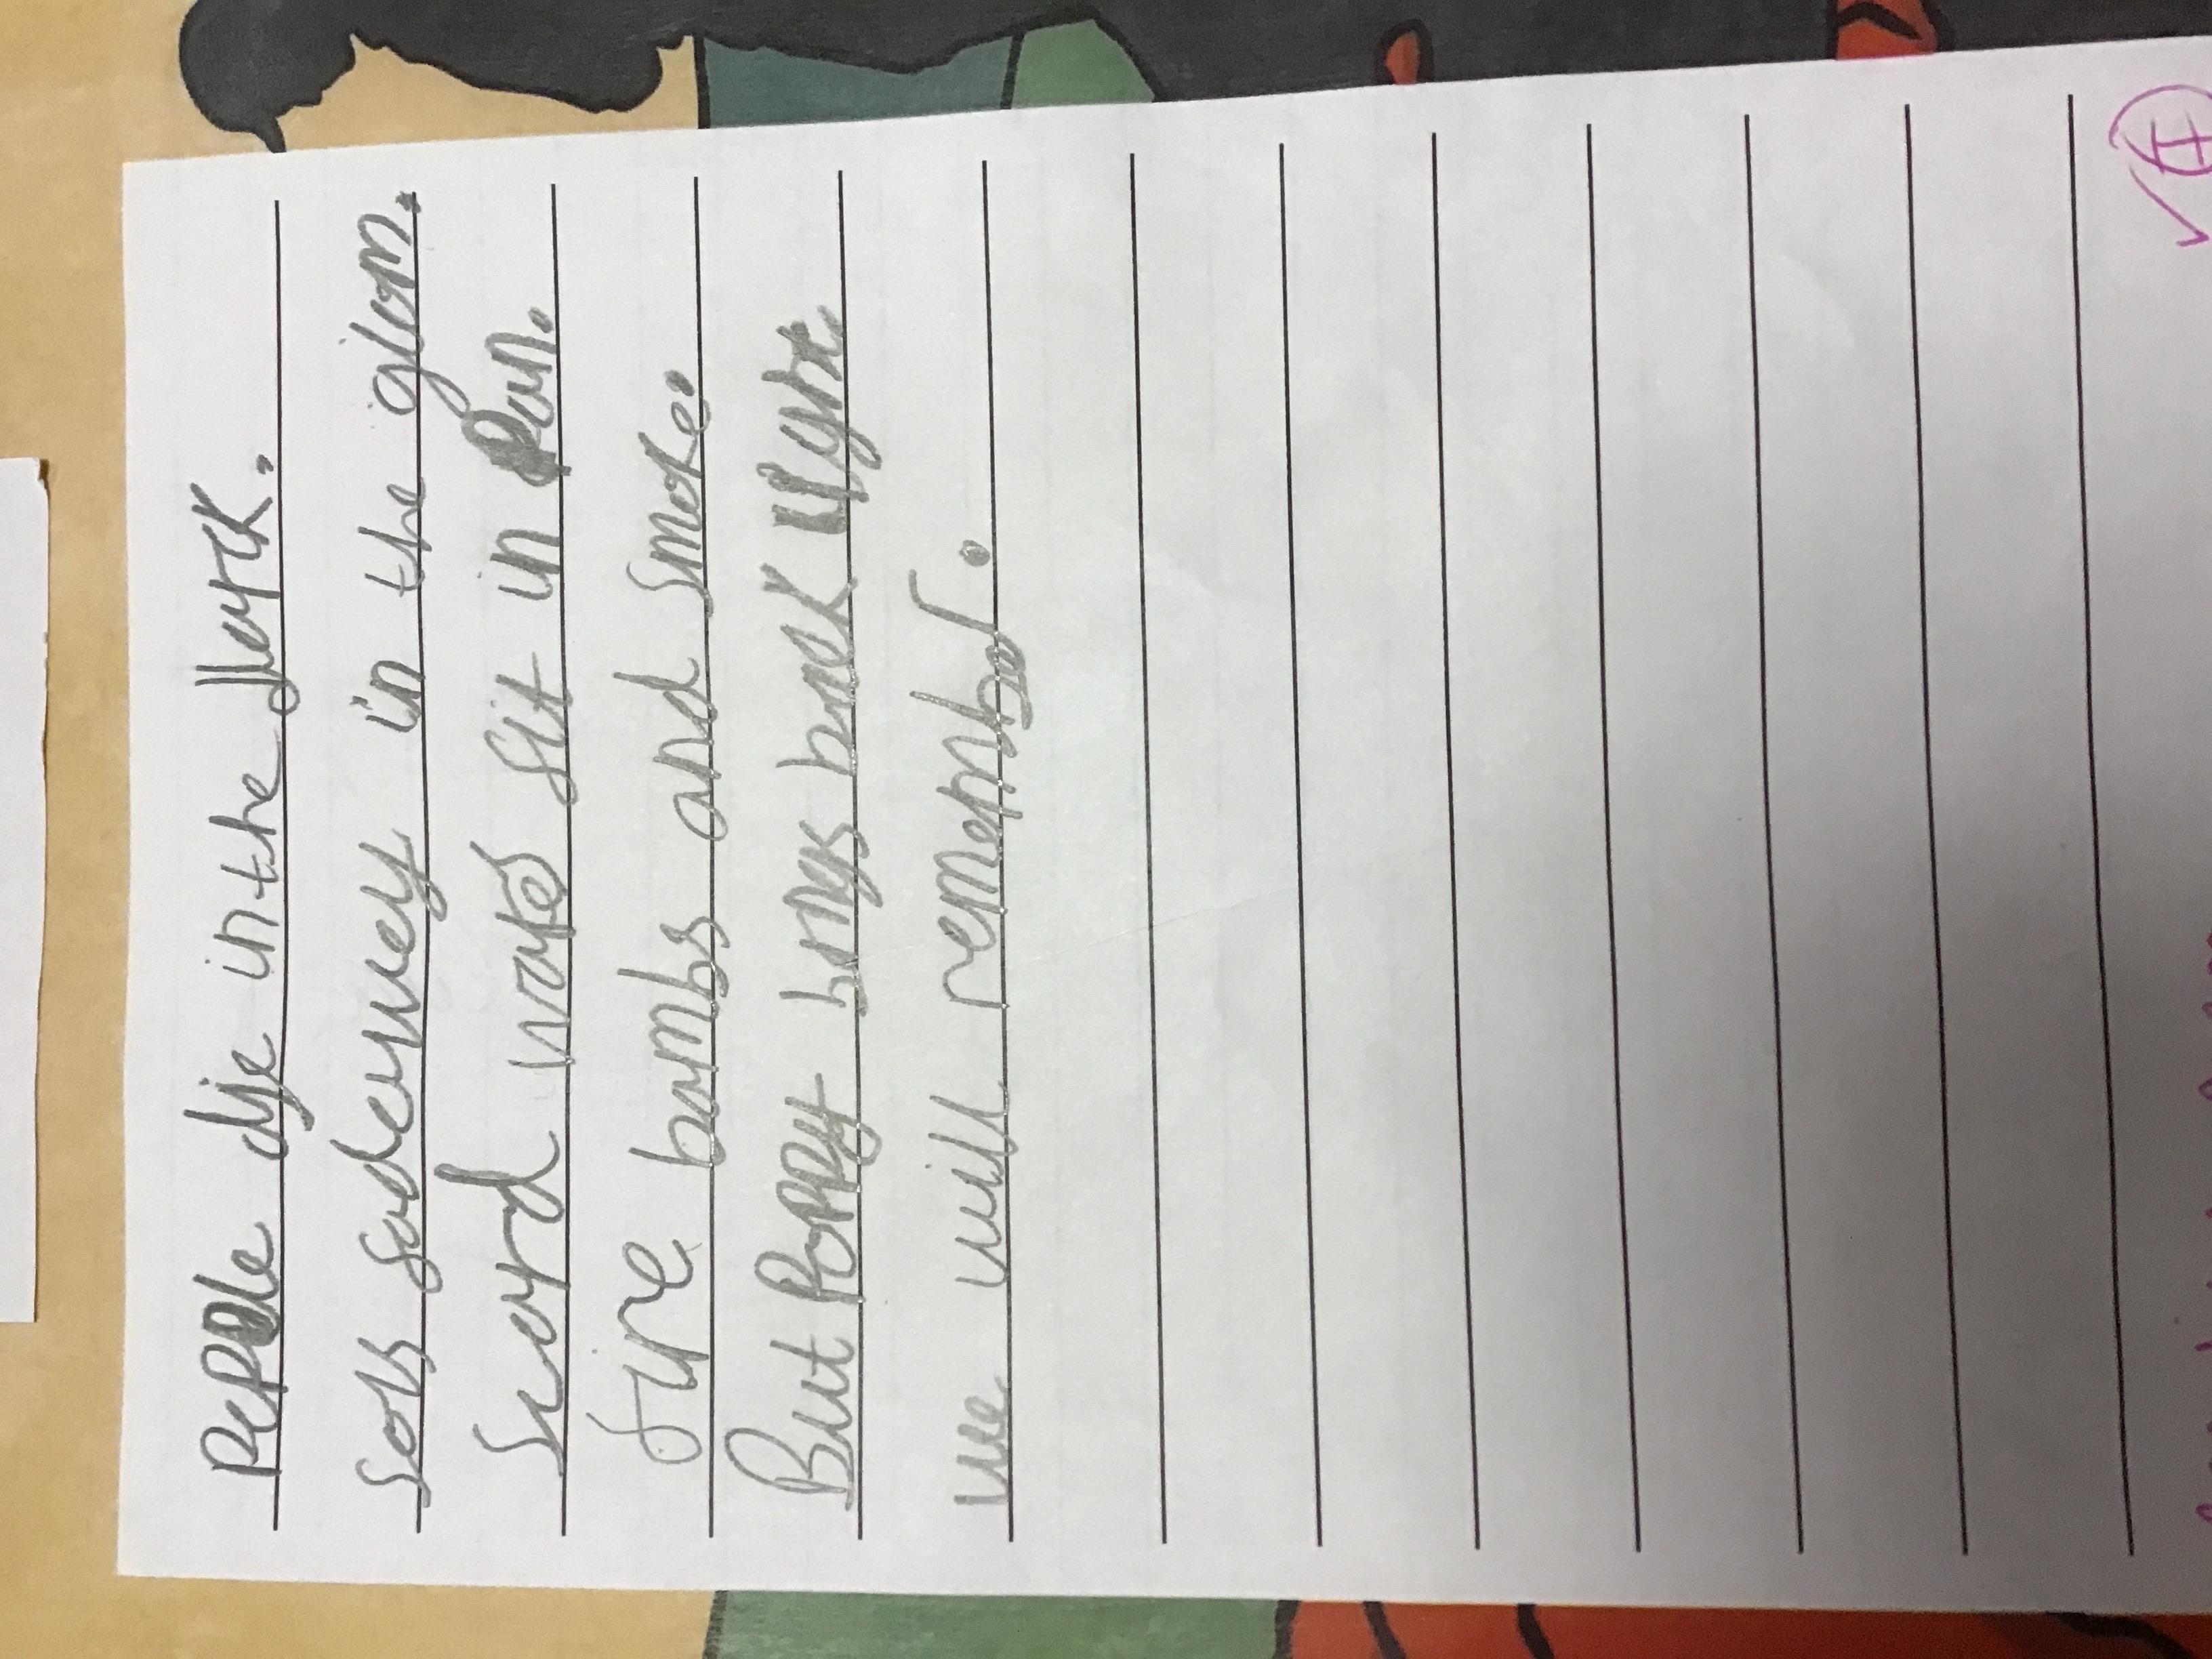 Pepple die in the dark.
sols saderury in the glom.
scard wates sit in Pan.
fire bombs and smoke.
But PoPPy brings back light
we will remember.